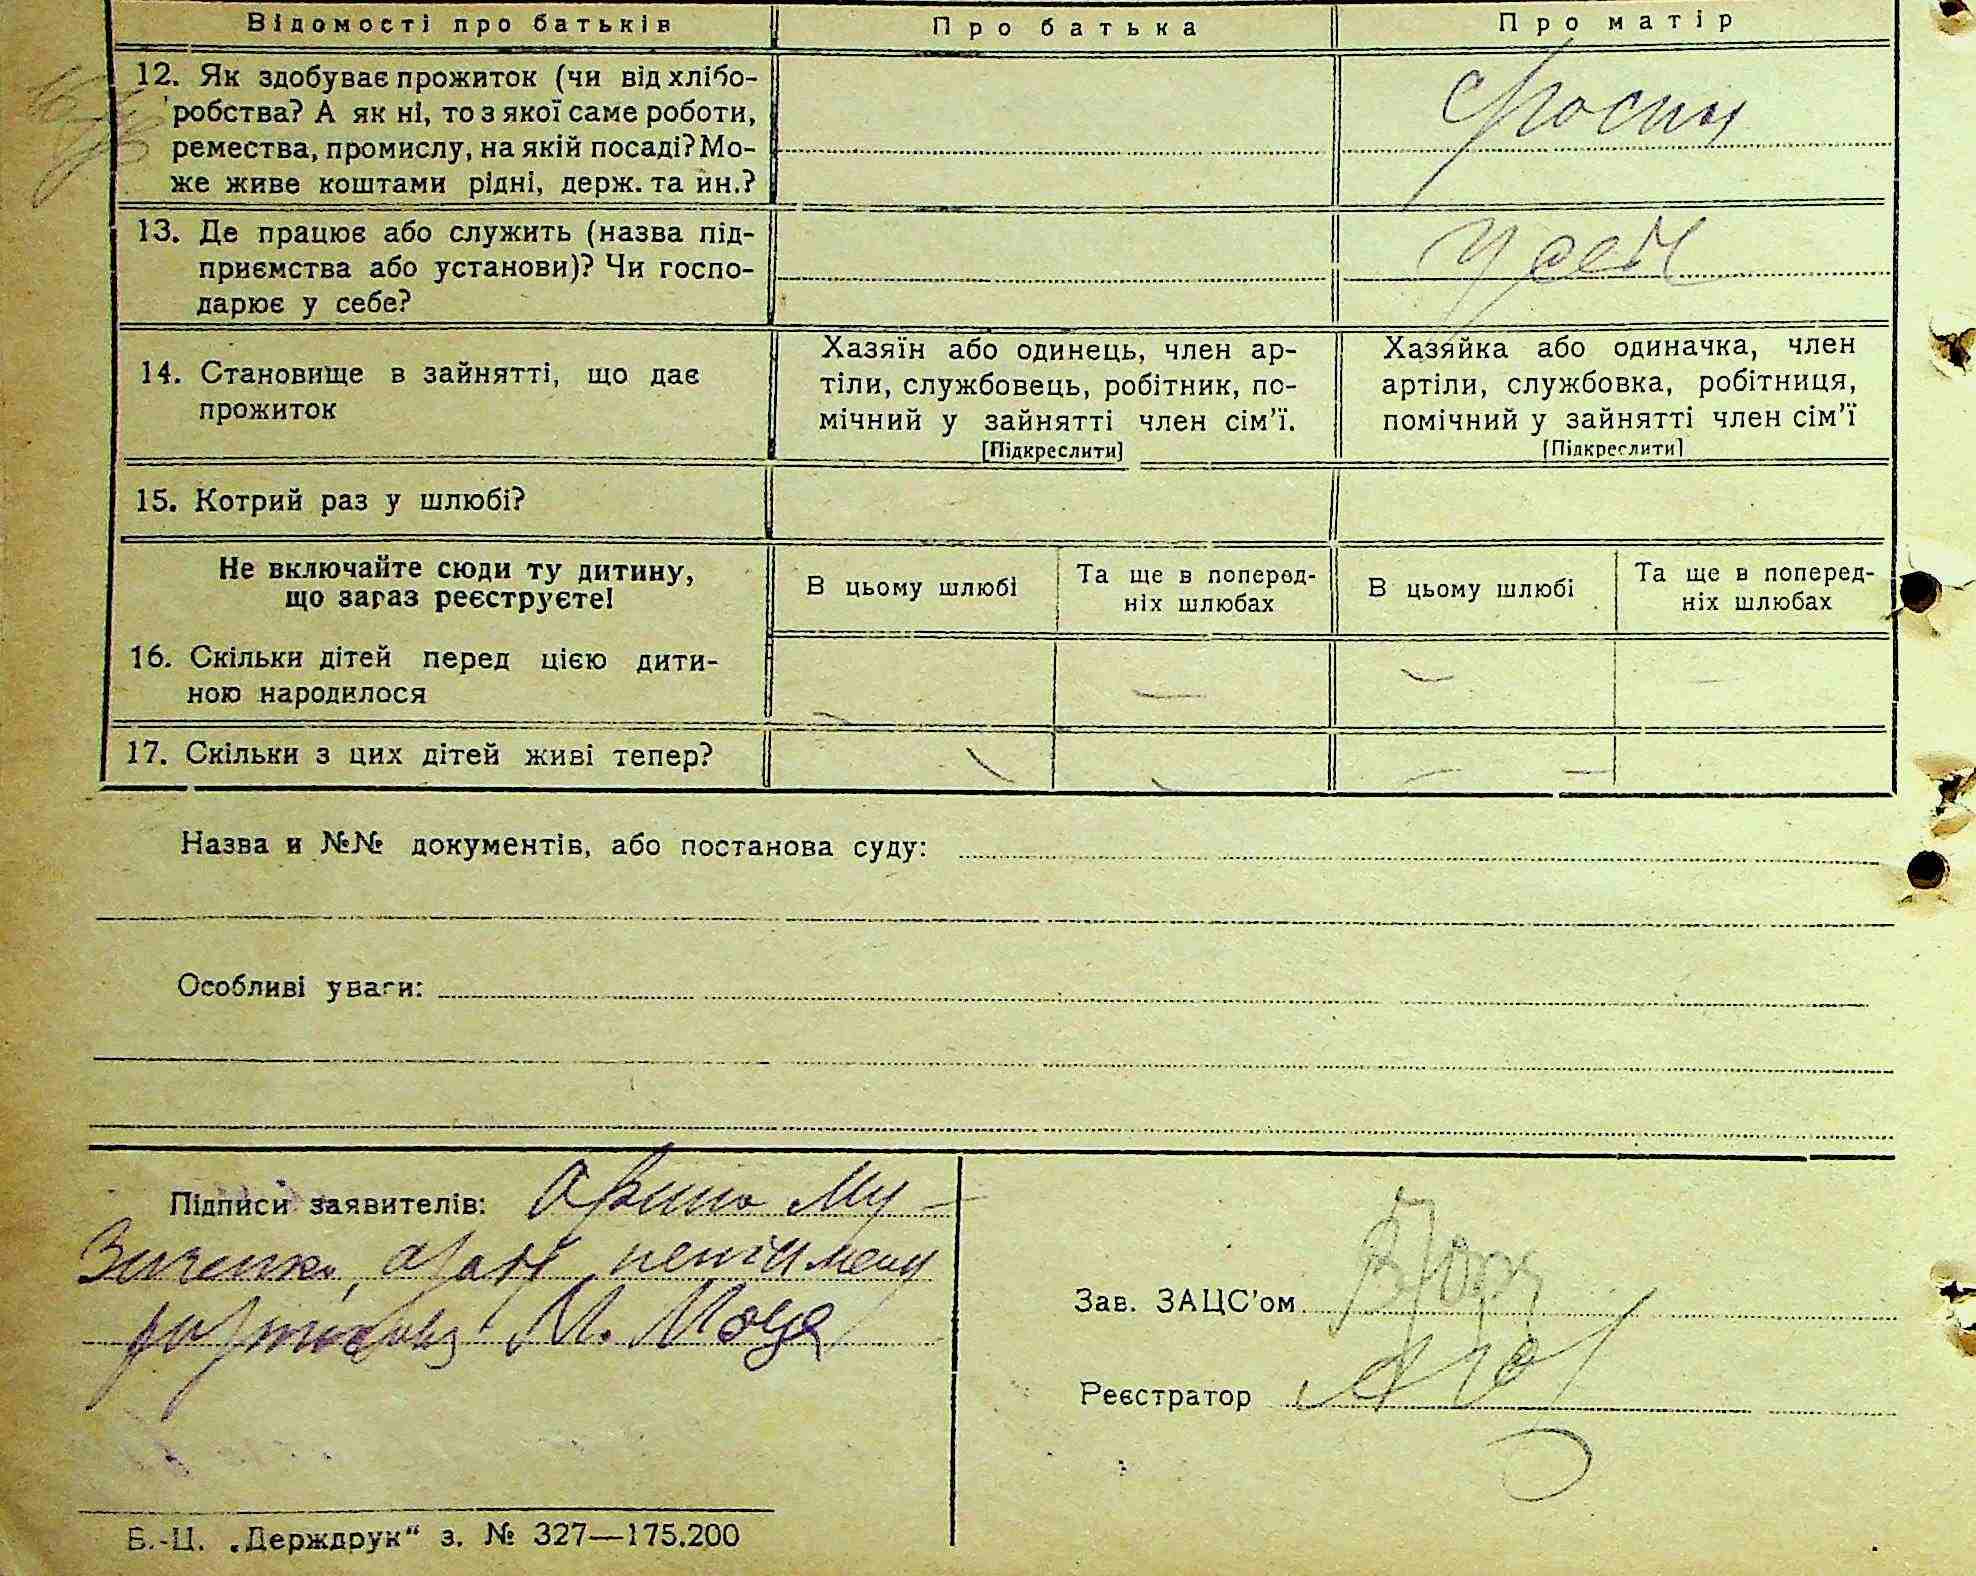 Відомості про батьків
Про батька
Про матір
12. Як здобуває прожиток (чи від хлібо-
робства? А як ні, то з якої саме роботи,
ремества, промислу, на якій посаді? Мо-
же живе коштами рідні, держ. та ин.?
13. Де працює або служить (назва під-
приємства або установи)? Чи госпо-
дарює у себе?
у себе
14. Становище в зайнятті, що дає
прожиток
Хазяїн або одинець, член ар-
тіли, службовець, робітник, по-
мічний у зайнятті член сім'ї.
[Підкреслити]
Хазяйка або одиначка, член
артіли, службовка, робітниця,
помічний у зайнятті член сім'ї
[Підкреслити]
15. Котрий раз у шлюбі?
Не включайте сюди ту дитину,
що зараз реєструєте!
В цьому шлюбі
Та ще в поперед-
ніх шлюбах
В цьому шлюбі
Та ще в поперед-
ніх шлюбах
16. Скільки дітей перед цією дити-
ною народилося
17. Скільки з цих дітей живі тепер?
Назва и №№ документів, або постанова суду:
Особливі уваги:
Підписи заявителів: Му-
зиченко,
М. Моца
Зав. ЗАЦС'ом
Реєстратор
Б.-Ц. „Держдрук“ з. № 327—175.200